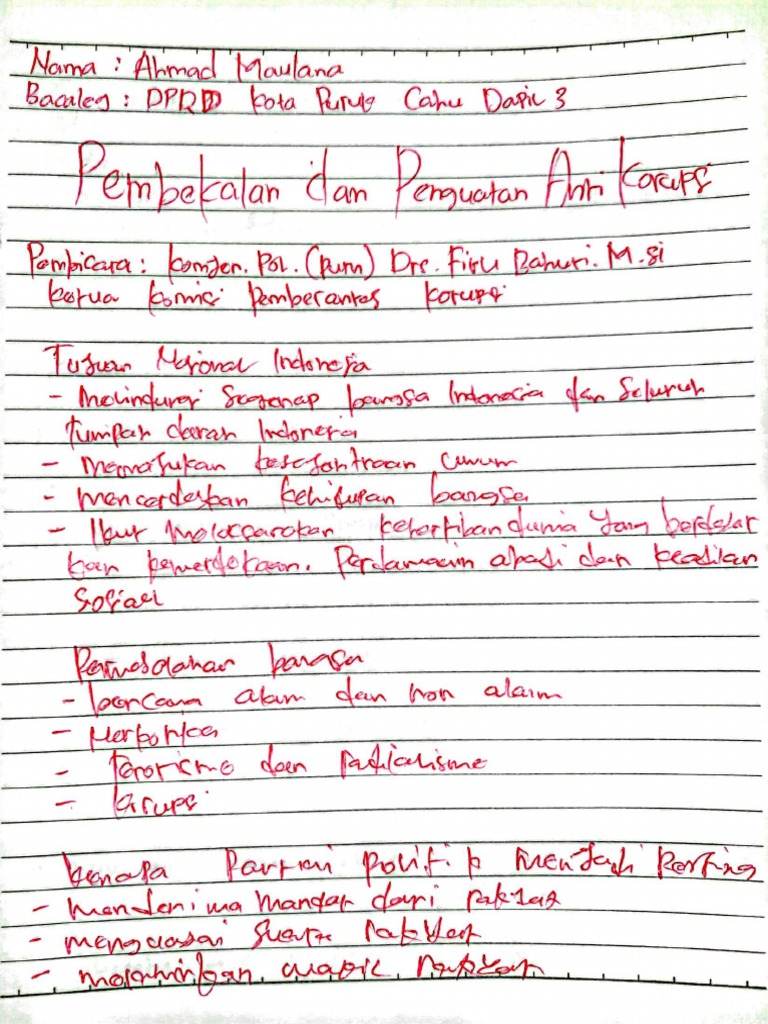 Nama : Ahmad Maulana
Bacaleg : DPRD Kota Puruk Cahu Dapil 3
Pembekalan dan Penguatan Anti Korupsi
Pembicara : Komjen. Pol. (purn) Drs. Firli Bahuri. M.si
Ketua Komisi Pemberantas Korupsi
Tujuan Nasional Indonesia
- Melindungi Segenap bangsa Indonesia dan Seluruh
tumpah darah Indonesia
- Memajukan kesejahtraan umum
- mencerdaskan kehidupan bangsa
- Ikut Melaksanakan ketertiban dunia yang berdasar
kan kemerdekaan. Perdamaian abadi dan keadilan
Sosial
Permasalahan bangsa
- bencana alam dan non alam
- Narkotika
- terorisme dan radikalisme
- Korupsi
kenapa Partai politik menjadi penting
- menerima mandat dari rakyat
- menguasai suara rakyat
- melahirkan wakil rakyat